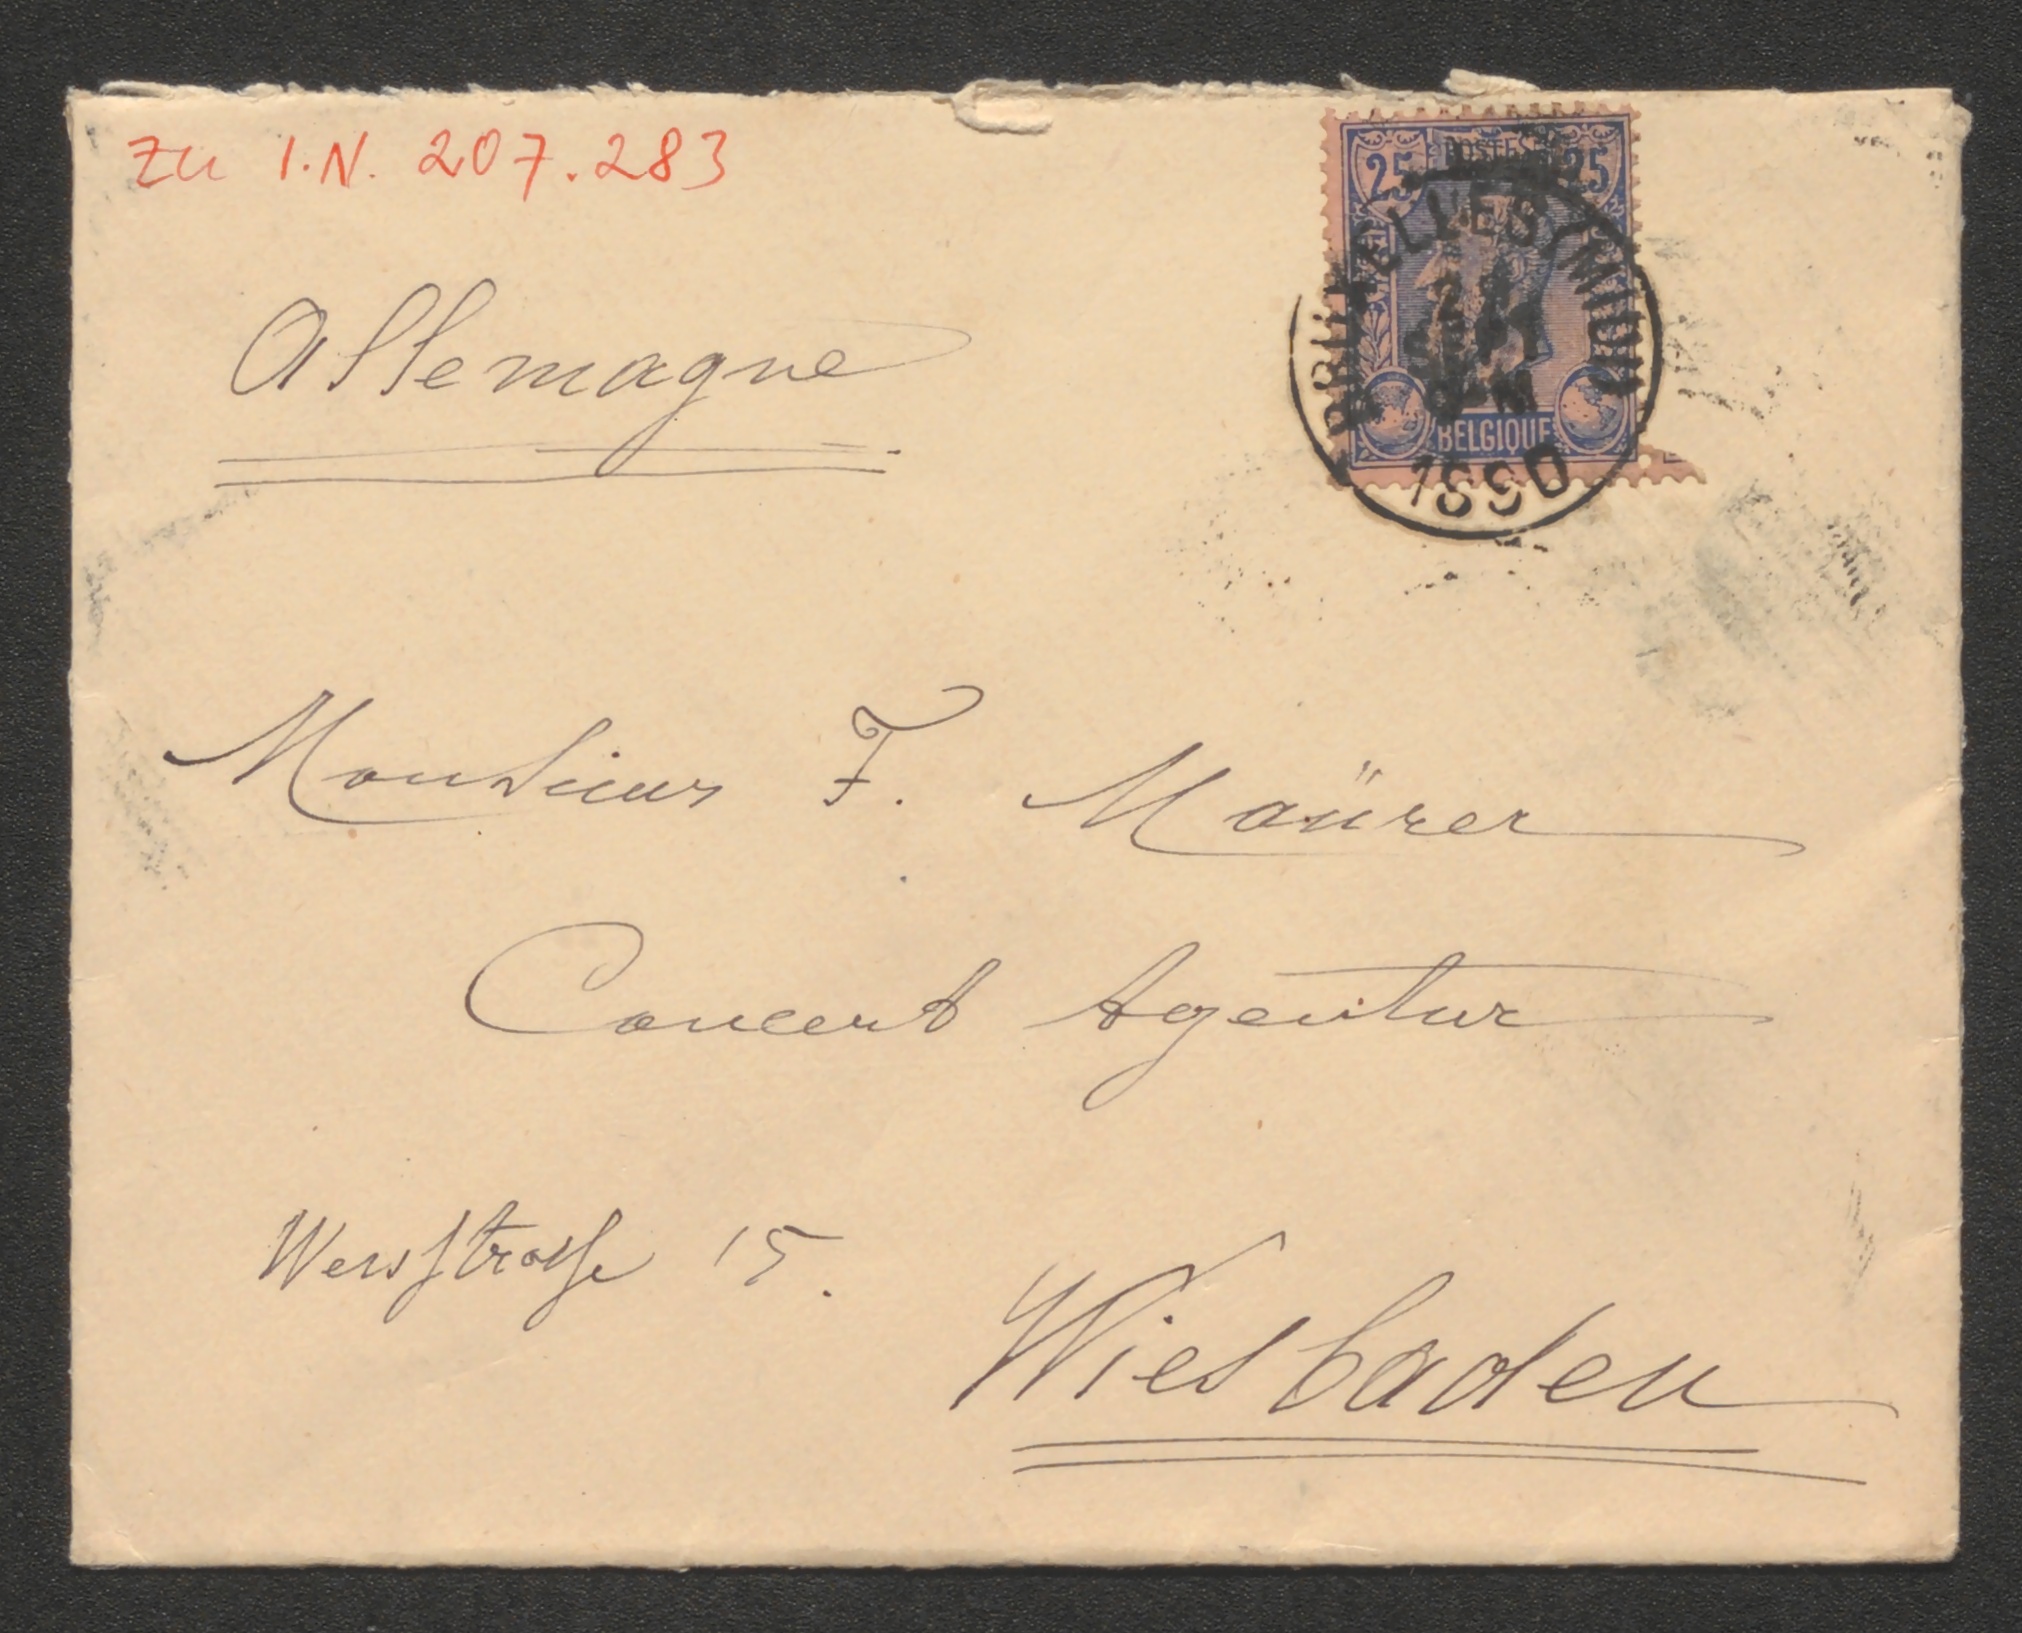 zu I.N. 207.283
25 POSTES 25
BRUXELLES (MIDI)
SEPT
1890
BELGIQUE
Allemagne
Monsieur F. Maürer
Concert Agentur
15.
Wiesbaden